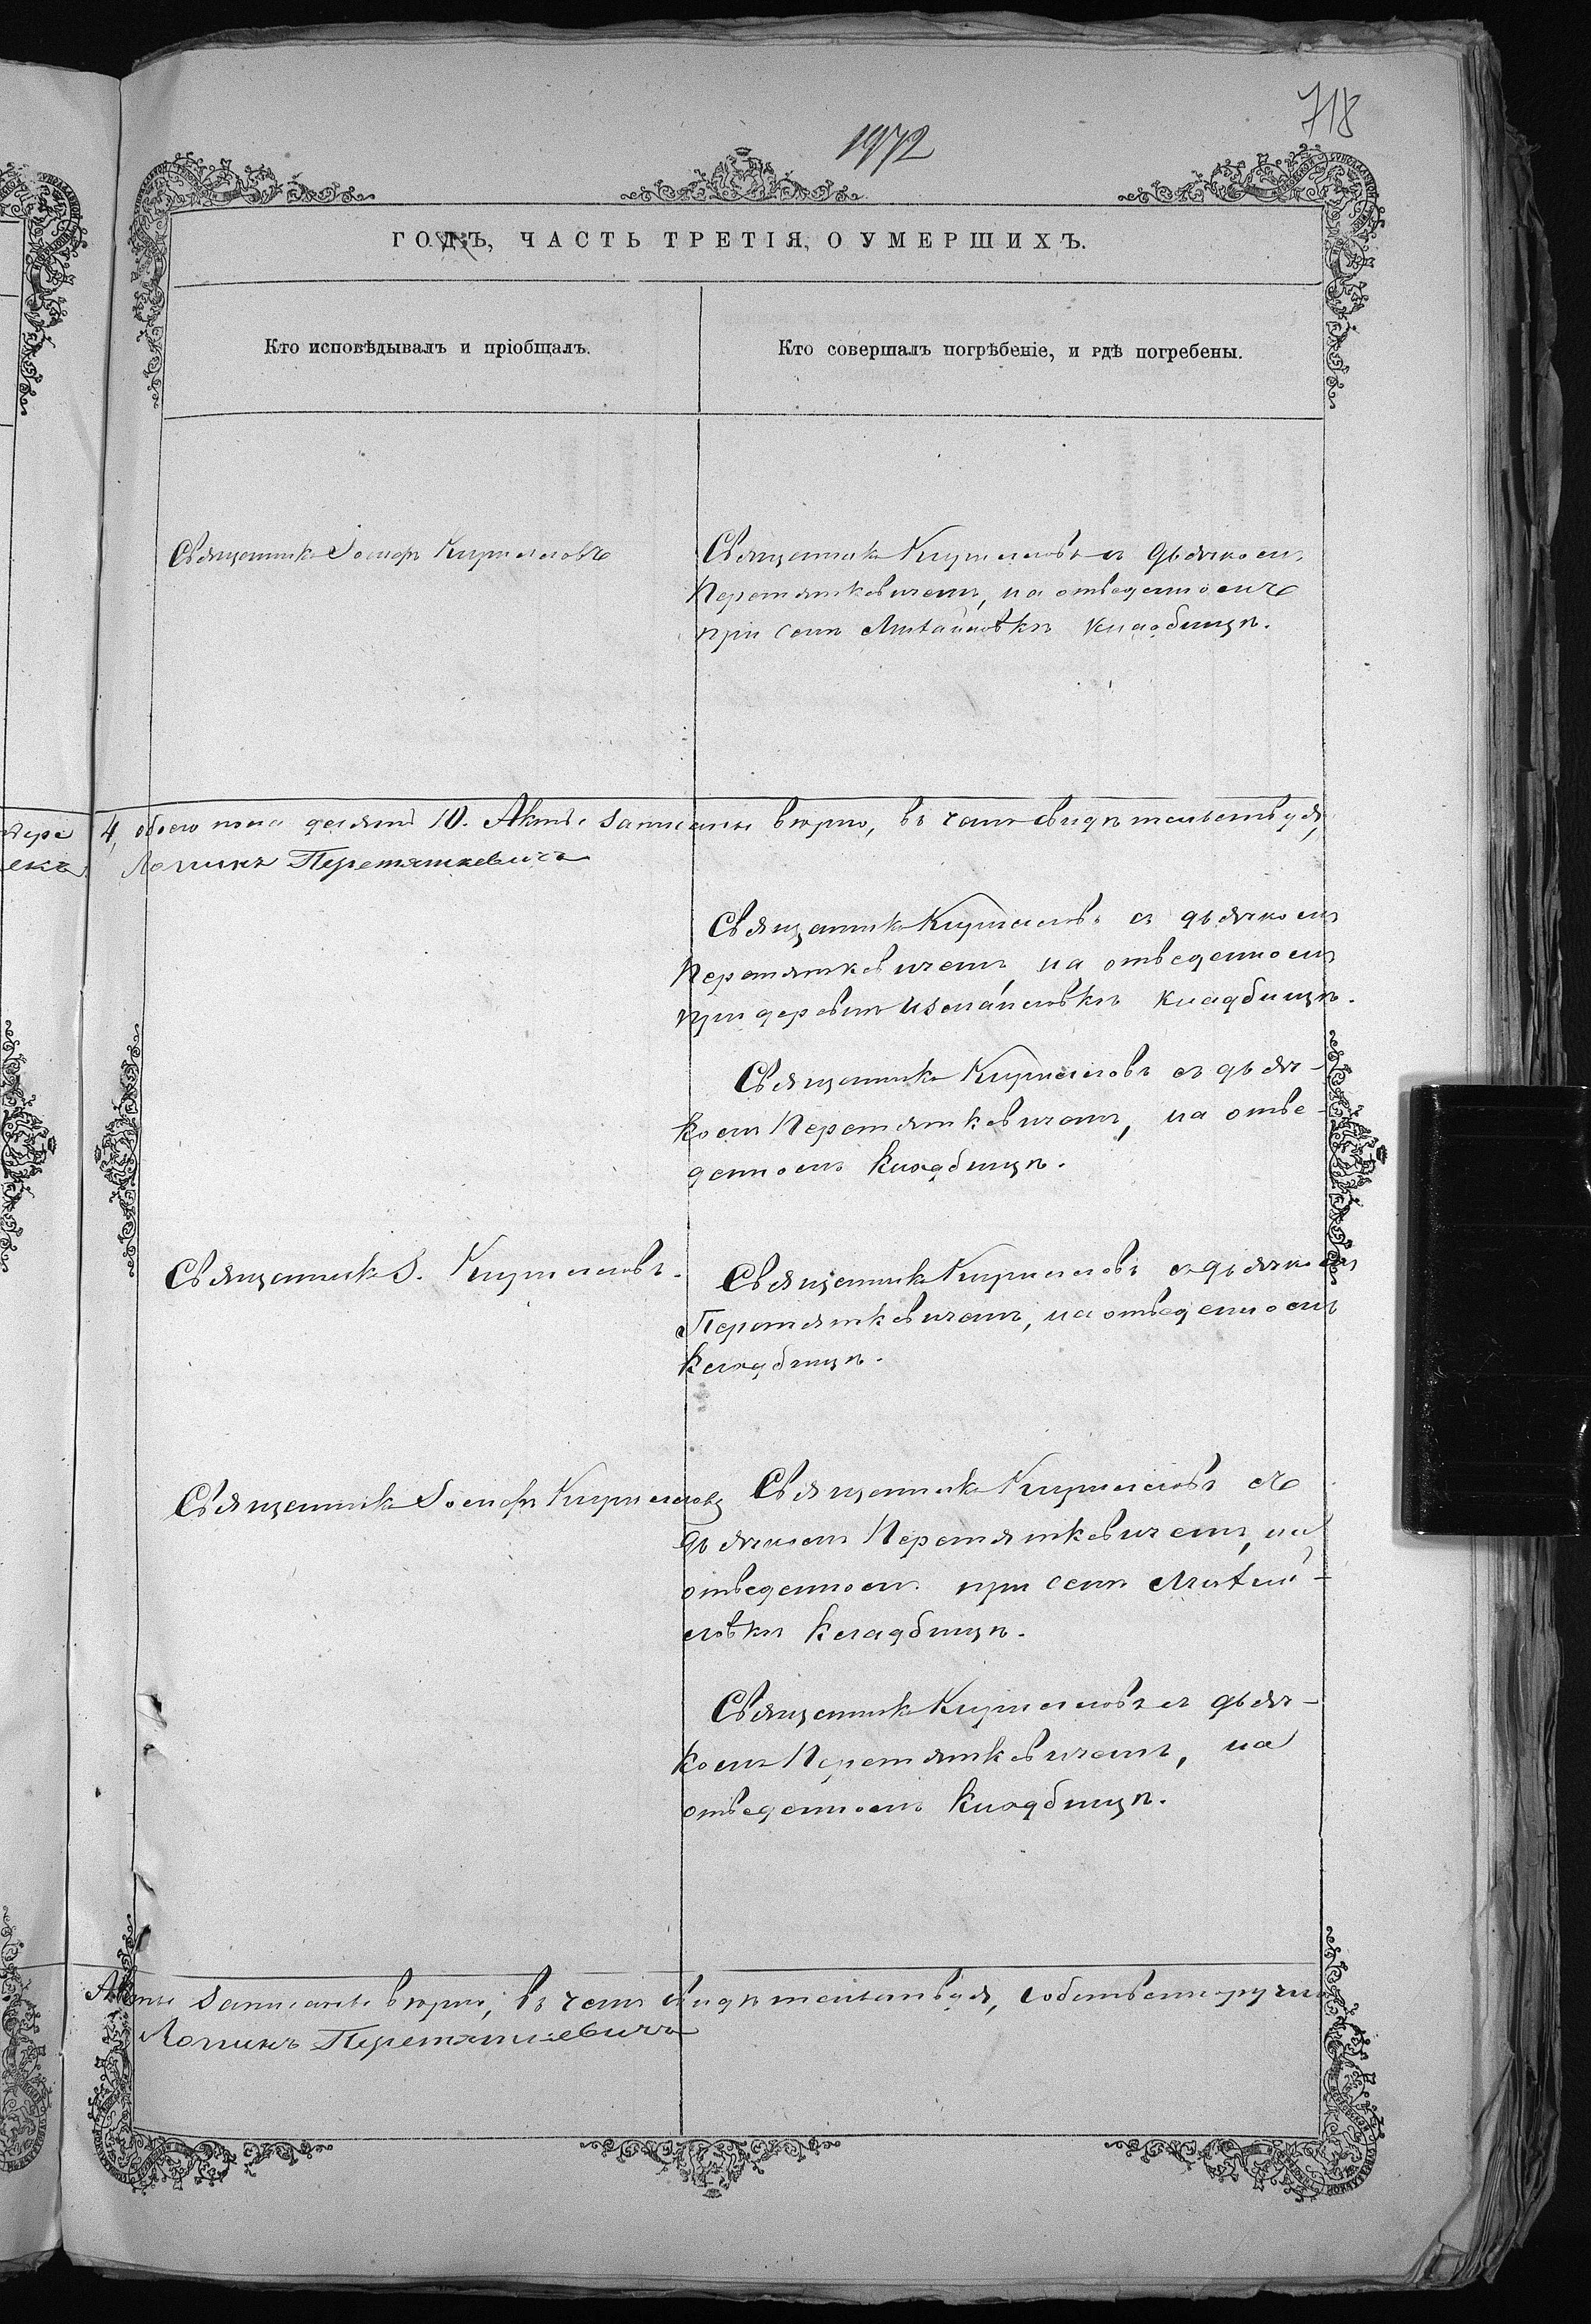 718
1972
ГОДЪ, ЧАСТЬ ТРЕТІЯ, О УМЕРШИХЪ.
Кто исповѣдывалъ и пріобщалъ.
Кто совершалъ погрѣбеніе, и гдѣ погребены.
Священникъ Іосифъ Кирилловъ
Священникъ Кирилловъ съ дьячкомъ
Перетятковичемъ, на отведенномъ
при селѣ Михайловкѣ кладбищѣ.
4, обоего пола десять 10. Акты записаны вѣрно, въ чемъ свидѣтельствуя,
Логинъ Перетятковичъ
Священникъ Кирилловъ съ дьячкомъ
Перетятковичемъ, на отведенномъ
при деревнѣ Измайловкѣ кладбищѣ.
Священникъ Кирилловъ съ дьяч-
комъ Перетятковичемъ, на отве-
денномъ кладбищѣ.
Священникъ І. Кирилловъ.
Священникъ Кирилловъ съ дьячкомъ
Перетятковичемъ, на отведенномъ
кладбищѣ.
Священникъ Іосифъ Кирилловъ
Священникъ Кирилловъ съ
дьячкомъ Перетятковичемъ, на
отведенномъ при селѣ Михай-
ловкѣ кладбищѣ.
Священникъ Кирилловъ съ дьяч-
комъ Перетятковичемъ, на
отведенномъ кладбищѣ.
Акты записаны вѣрно, въ чемъ свидѣтельствуя, собственноручно
Перетятковичъ